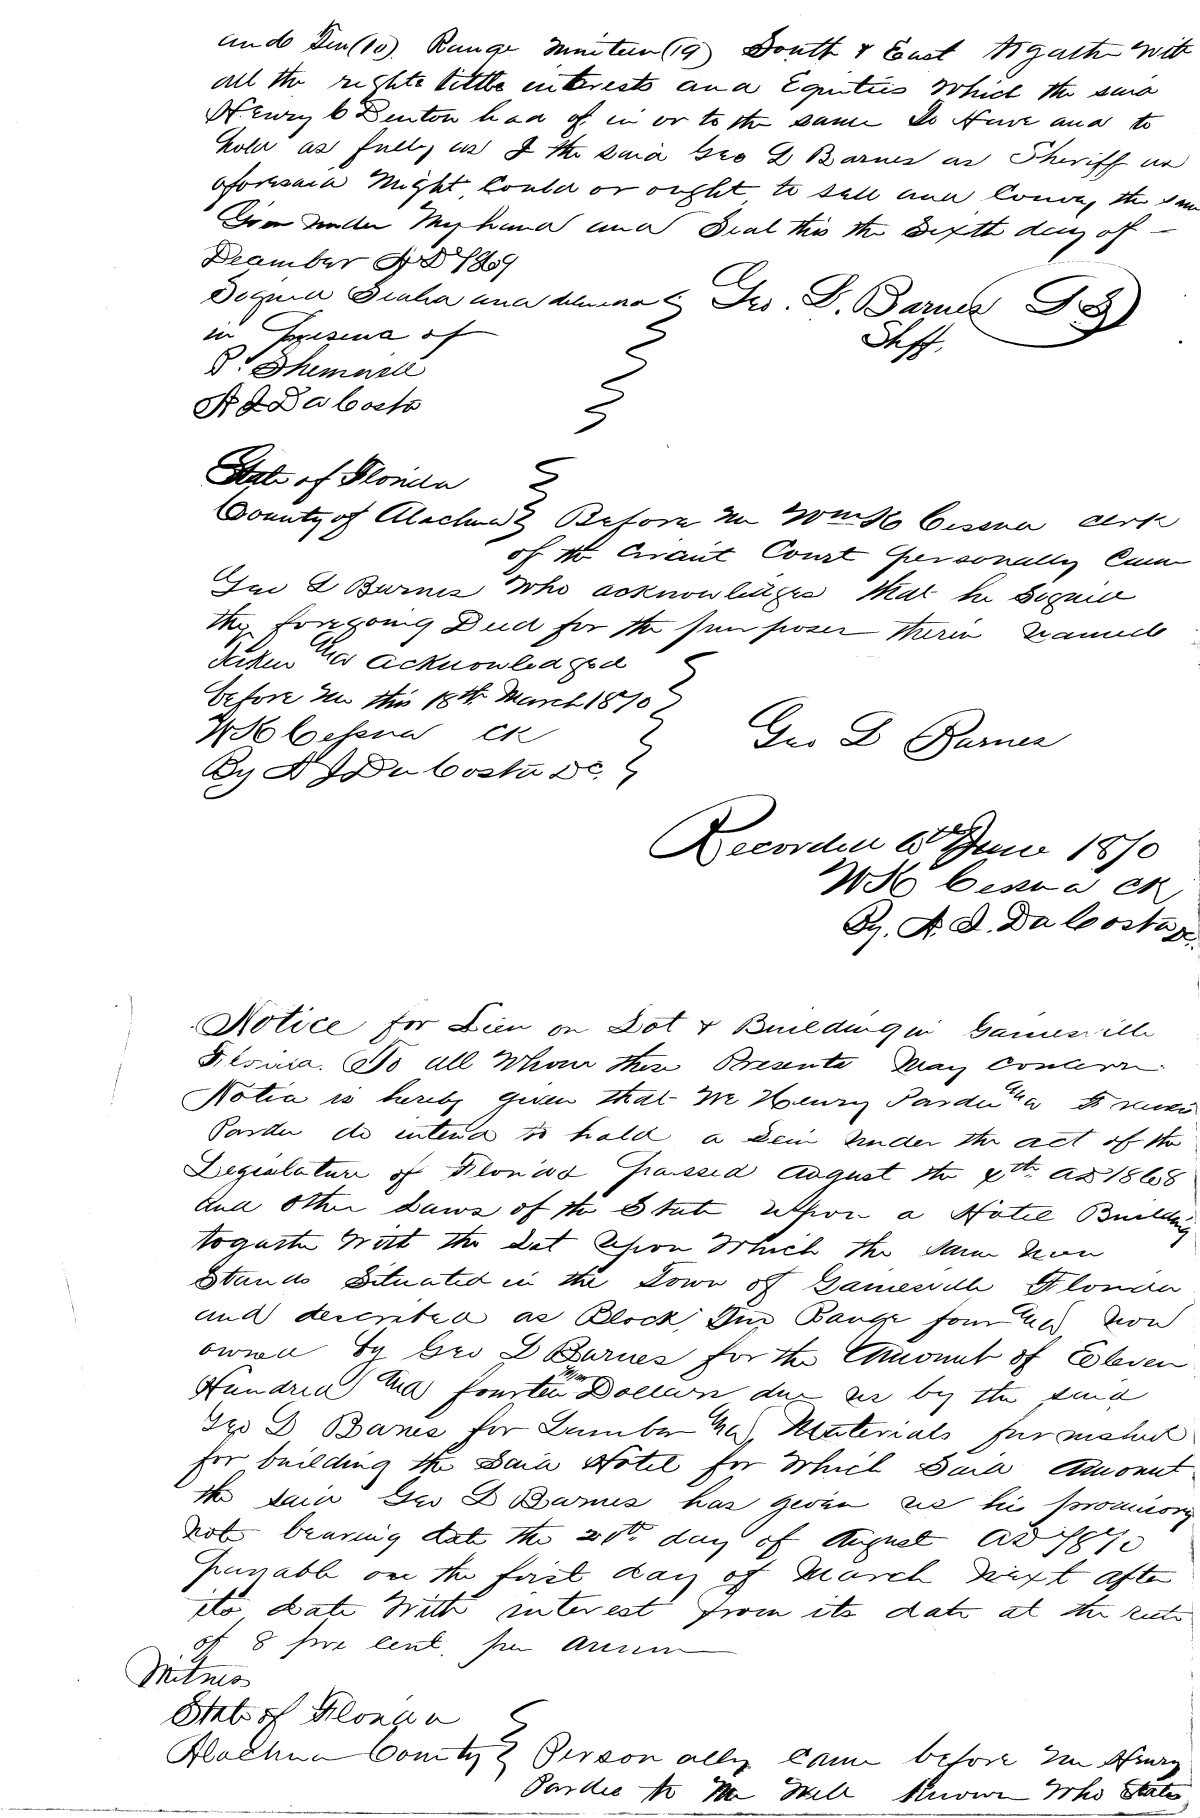 and Ten (10) Range Nineteen (19) South & East Togather With
all the rights tittle interests and Equities Which the said
Henry C Denton had of in or to the same To Have and to
hold as fully as I the said Geo L Barnes as Sheriff as
aforesaid Might, Could or ought to sell and Convey the same
Given under My hand and Seal this the Sixth day of
December AD 1869
Signed Sealed and delivered Geo. L. Barnes LS
in presence of Shff.
P. Shemwell
A J DaCosta
State of Florida
County of Alachua Before Me Wm K Cessna Clerk
of the Circuit Court personally Came
Geo L Barnes Who acknowledges that he Signed
the foregoing Deed for the purposes therein Named
Taken and acknowledged
before Me this 18th March 1870
WK Cessna Ck Geo L Barnes
By A J DaCosta DC.
Recorded 6th June 1870
WK Cessna CK
By. A. J. DaCosta DC.
Notice for Lien on Lot & Building in Gainesville
Florida. To all Whom these Presents May Concern.
Notice is hereby given that We Henry Pardee and Francis
Pardee do intend to hold a Lein under the act of the
Legislature of Florida passed August the 4th AD 1868
and other Laws of the State upon a Hotel Building
togather With the Lot upon Which the same Now
Stands Situated in the Town of Gainesville Florida
and described as Block, Two Range four and Now
owned by Geo L Barnes for the Amount of Eleven
Hundred and fourteen Dollars due us by the said
Geo L Barnes for Lumber and Materials furnished
for building the Said Hotel for Which Said Amount
the said Geo L Barnes has given us his promisory
Note bearing date the 20th day of August AD 1870
payable on the first day of March Next after
its date With interest from its date at the rate
of 8 pre cent. per annum
Witness
State of Florida
Alachua County Personally Came before Me Henry
Pardee to Me Well Known Who States